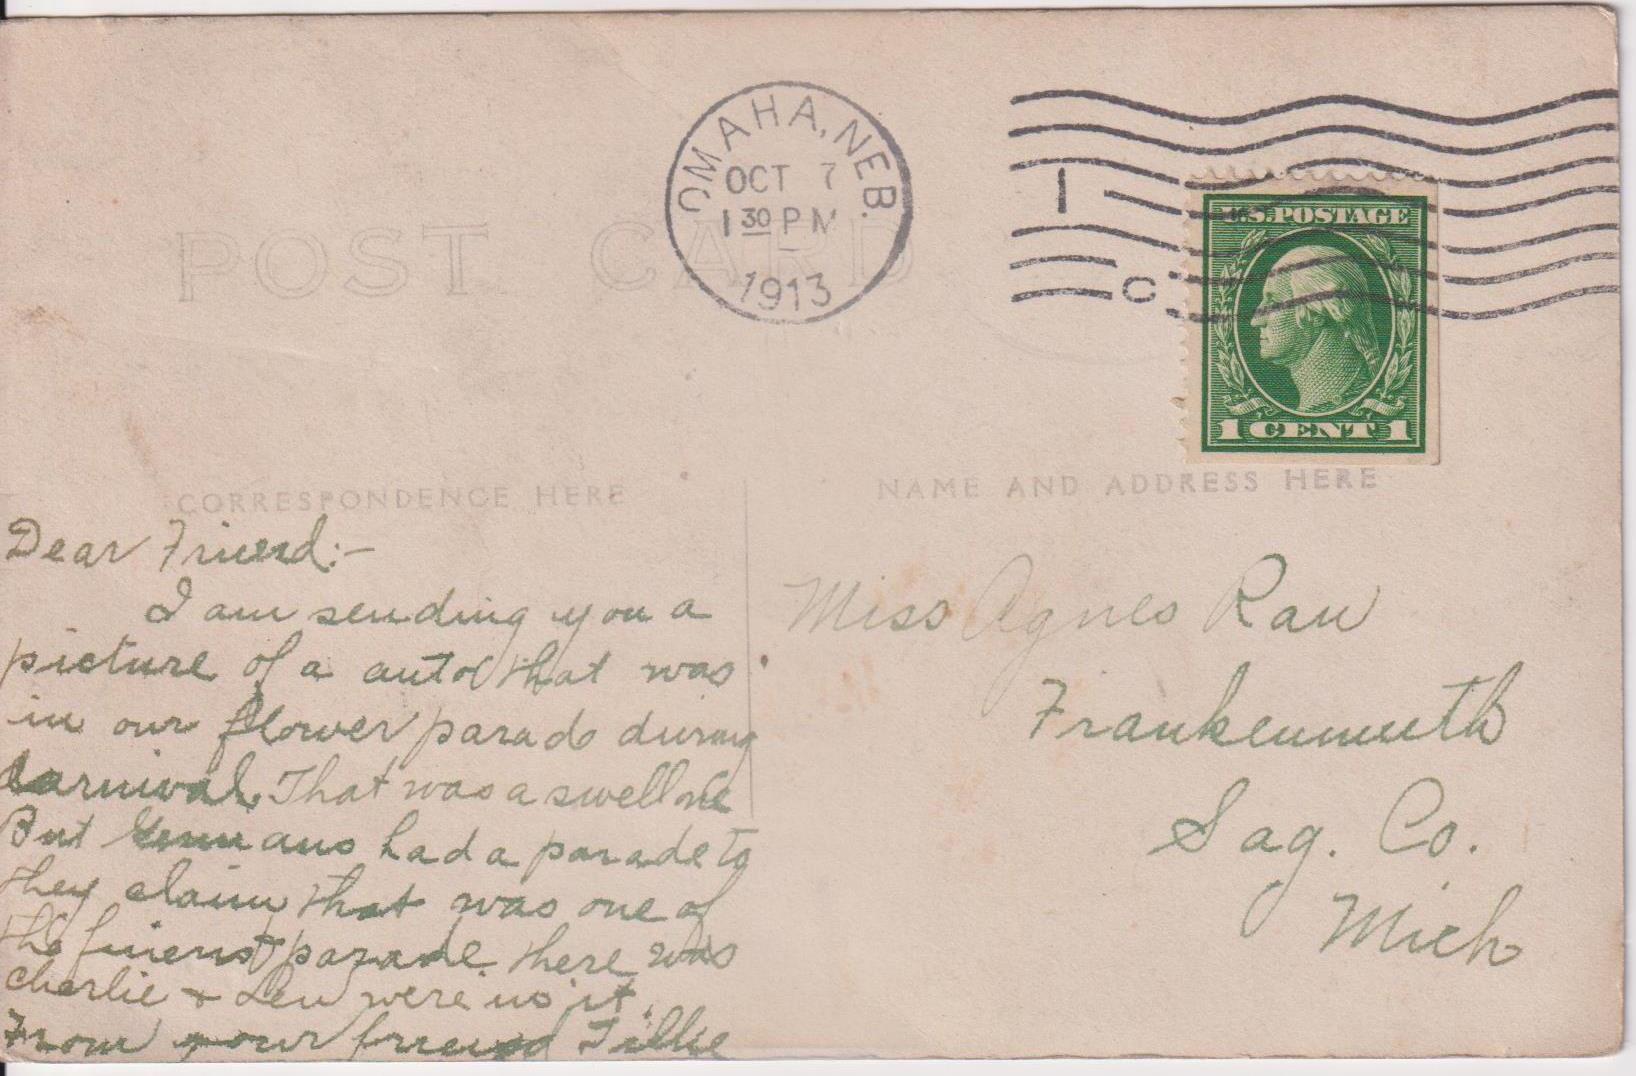 POST CARD
OMAHA, NEB.
OCT 7
1 30 PM
1913
U.S. POSTAGE
1 CENT 1
CORRESPONDENCE HERE
NAME AND ADDRESS HERE
Dear Friend:-
I am sending you a
picture of a auto that was
in our flower parade during
Carnival. That was a swell one
But Germans had a parade to
they claim that was one of
the finerst parade there was
Charlie + Lew were in it.
From your friend Tillie
Miss Agnes Rau
Frankenmuth
Sag. Co.
Mich